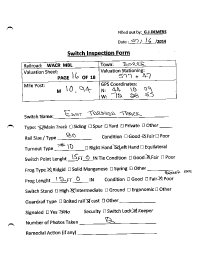 Filled out by: G.J. DEMERS
Date: 07/16/2019
Switch Inspection Form
Railroad: WACR MBL Town:
Valuation Sheet: PAGE 16 OF 18 Valuation Stationing: 577 + 47
Mile Post: M 10.94 GPS Coordinates: N: 44 18 09
W: 72
Switch Name: EAST TRACK
Type: Main Track Siding Spur Yard Private Other
Rail Size / Type 80 Condition Good Fair Poor
Turnout Type #10 Right Hand Left Hand Equilateral
Switch Point Lenght 15 Ft 0 IN Tie Condition Good Fair Poor
Frog Type Ridgid Solid Manganese Spring Other
Frog Lenght Ft 0 IN Condition Good Fair Poor
Switch Stand High Intermediate Ground Ergonomic Other
Guardrail Type Bolted rail cast Other
Signaled Yes No Security Switch Lock Keeper
Number of Photos Taken
Remedial Action (if any)